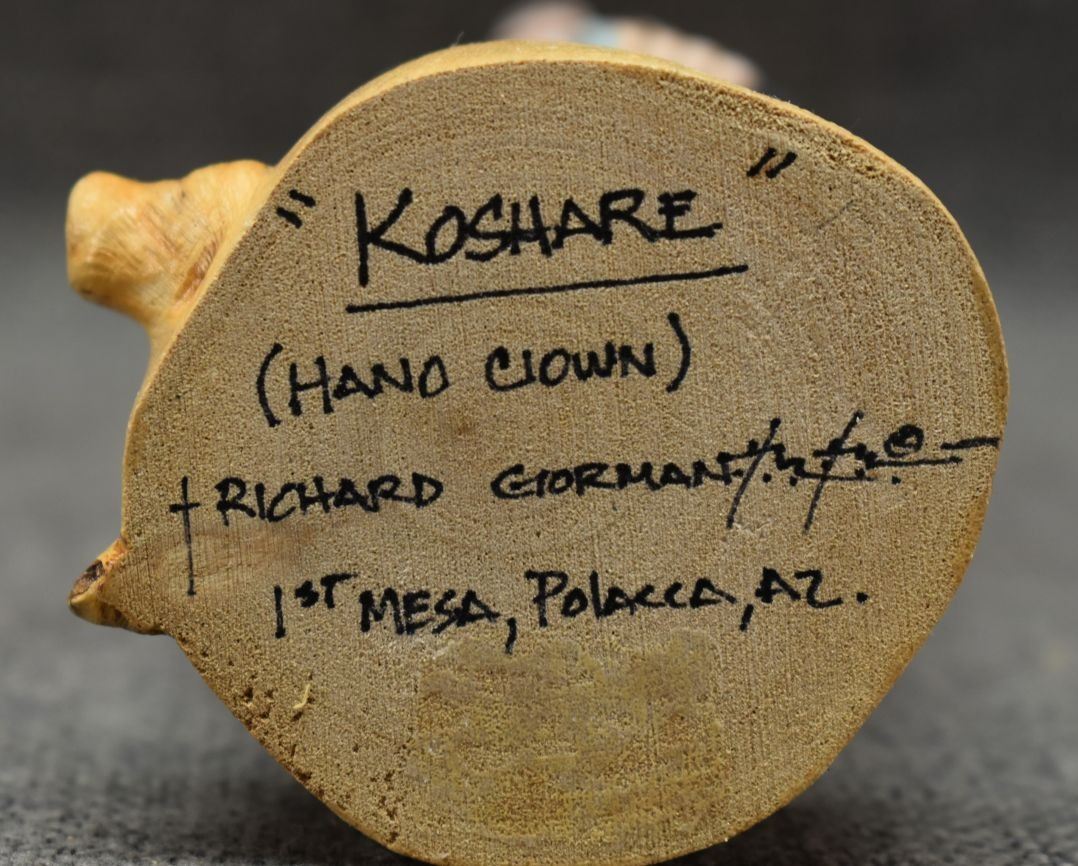 "KOSHARE"
(HANO ClOWN)
RICHARD GORMAN
1ST MESA, POlACCA, AZ.